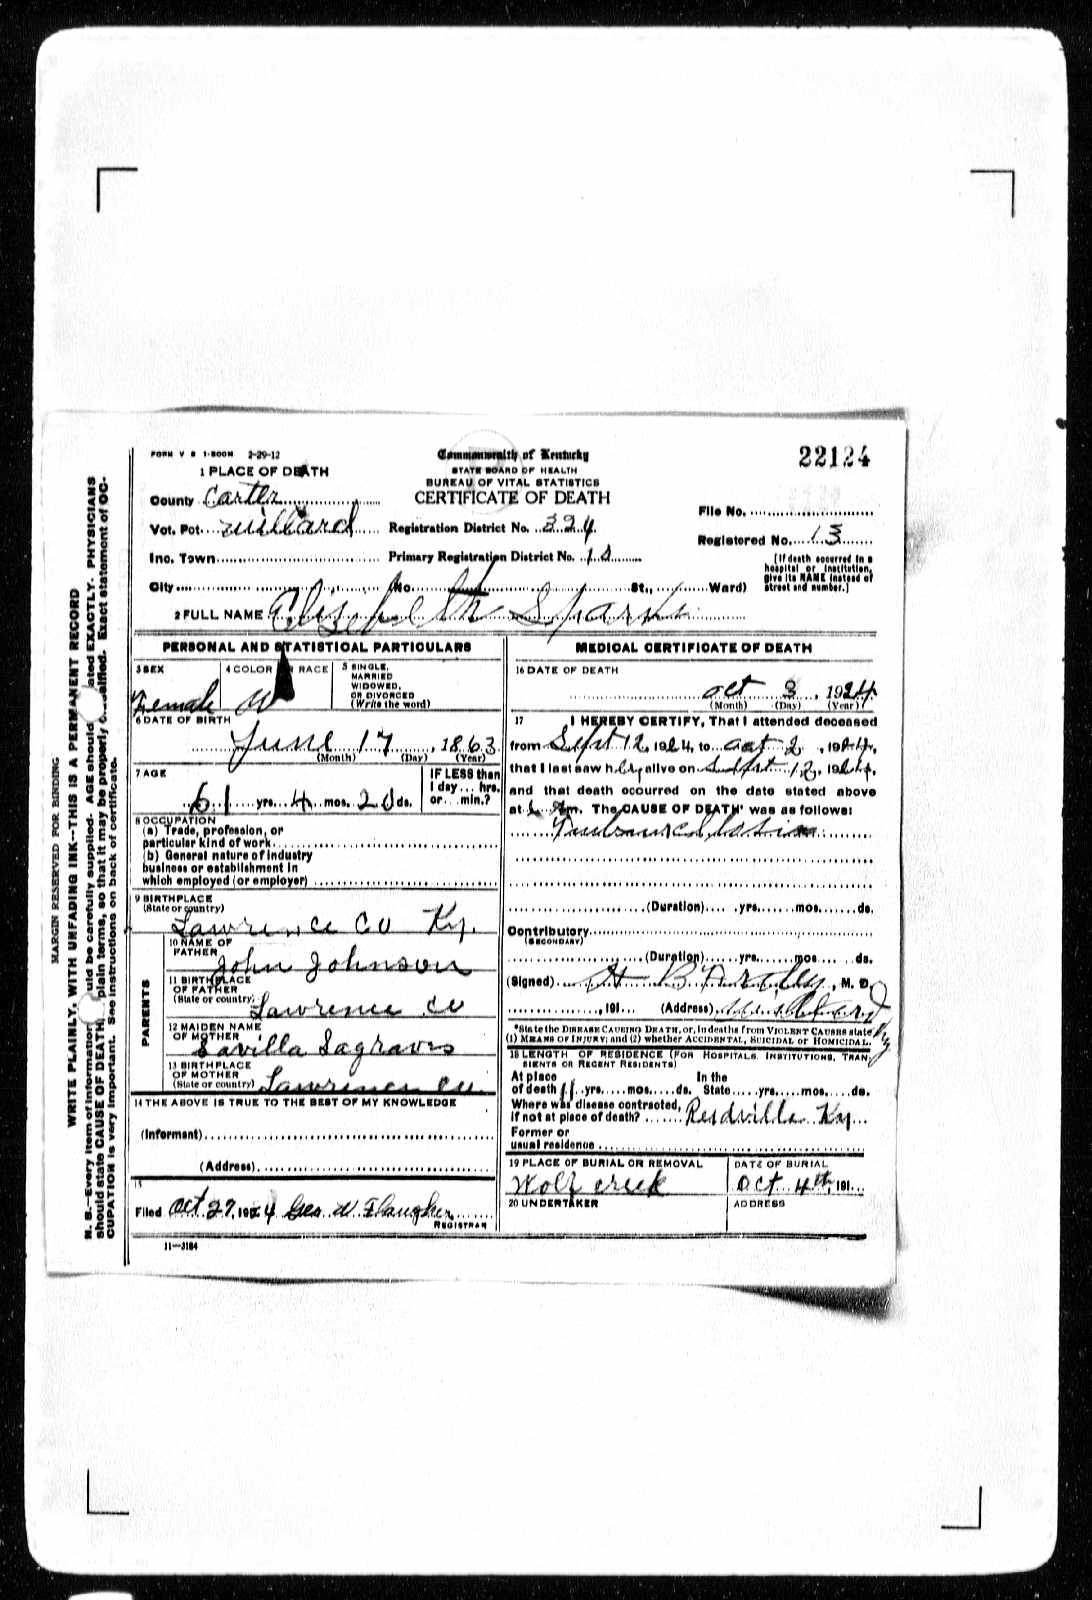 FORM V S 1-500M 2-29-12
Commonwealth of Kentucky
STATE BOARD OF HEALTH
BUREAU OF VITAL STATISTICS
CERTIFICATE OF DEATH
22124
1 PLACE OF DEATH
County Carter
Vot. Pct. Willard Registration District No. 324
Inc. Town Primary Registration District No.
City (No. St., Ward)
File No.
Registered No. 13
[If death occurred in a
hospital or institution,
give its NAME instead of
street and number.]
2 FULL NAME Elizebeth Sparks
PERSONAL AND STATISTICAL PARTICULARS
3 SEX
Female
4 COLOR OR RACE
W
5 SINGLE,
MARRIED
WIDOWED,
OR DIVORCED
(Write the word)
6 DATE OF BIRTH
June 17, 1863
(Month) (Day) (Year)
7 AGE
61 yrs. 4 mos. ds.
IF LESS than
1 day ... hrs.
or ... min.?
8 OCCUPATION
(a) Trade, profession, or
particular kind of work
(b) General nature of industry
business or establishment in
which employed (or employer)
9 BIRTHPLACE
(State or country)
Lawrence Co Ky.
PARENTS
10 NAME OF
FATHER
John Johnson
11 BIRTHPLACE
OF FATHER
(State or country)
Lawrence Co
12 MAIDEN NAME
OF MOTHER
Savilla Sagraves
13 BIRTHPLACE
OF MOTHER
(State or country) Lawrence Co
14 THE ABOVE IS TRUE TO THE BEST OF MY KNOWLEDGE
(Informant)
(Address)
15
Filed Oct 27, 1924 Geo W Flaugher
REGISTRAR
11—3184
MEDICAL CERTIFICATE OF DEATH
16 DATE OF DEATH
Oct 3, 1924
(Month) (Day) (Year)
17 I HEREBY CERTIFY, That I attended deceased
from Sept 12, 1924, to Oct 2, 1924,
that I last saw her alive on Sept 12, 1924,
and that death occurred on the date stated above
at m. The CAUSE OF DEATH* was as follows:
(Duration) yrs. mos. ds.
Contributory
(SECONDARY)
(Duration) yrs. mos. ds.
(Signed) H B, M. D.
, 191 (Address) Willard Ky
*State the DISEASE CAUSING DEATH, or, in deaths from VIOLENT CAUSES state
(1) MEANS OF INJURY; and (2) whether ACCIDENTAL, SUICIDAL or HOMICIDAL.
18 LENGTH OF RESIDENCE (FOR HOSPITALS, INSTITUTIONS, TRAN-
SIENTS OR RECENT RESIDENTS)
At place In the
of death 11 yrs. mos. ds. State yrs. mos. ds.
Where was disease contracted,
if not at place of death? Reidville Ky
Former or
usual residence
19 PLACE OF BURIAL OR REMOVAL
Wolf creek
DATE OF BURIAL
Oct 4th, 191
20 UNDERTAKER
ADDRESS
MARGIN RESERVED FOR BINDING
WRITE PLAINLY, WITH UNFADING INK--THIS IS A PERMANENT RECORD
N. B.--Every item of information should be carefully supplied. AGE should stated EXACTLY. PHYSICIANS
should state CAUSE OF DEATH plain terms, so that it may be properly classified. Exact statement of OC-
CUPATION is very important. See instructions on back of certificate.